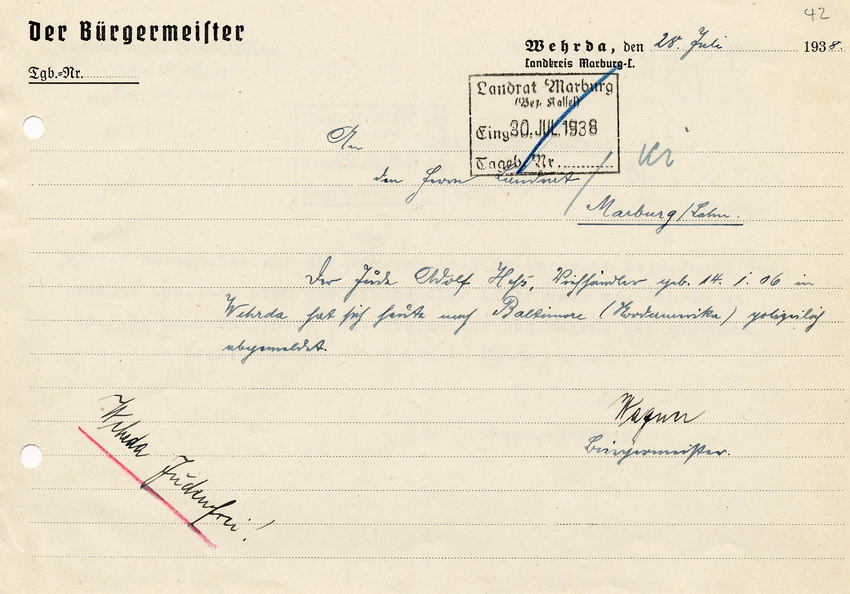 42
Der Bürgermeister
Wehrda, den 28. Juli 1938.
Landkreis Marburg-L.
Tgb.-Nr.
Landrat Marburg
(Bez. Kassel)
Eing. 30. JUL. 1938
Tageb. Nr.
An
den Herrn Landrat
Marburg/Lahn.
Der Jude Adolf Heß, Viehhändler geb. 14. 1. 06 in
Wehrda hat sich heute nach Baltimore (Nordamerika) polizeilich
abgemeldet.
Wagner
Bürgermeister.
Wehrda Judenfrei!